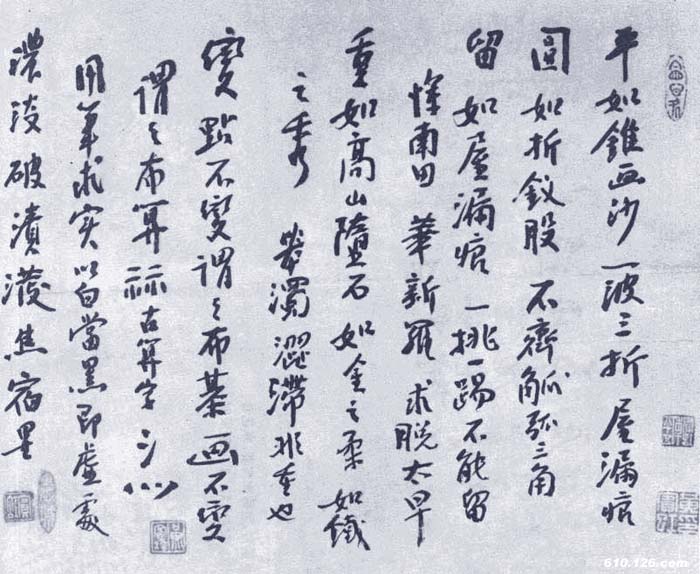 平如錐画沙 一波三折 屋漏痕
圓如折釵股 不齊 觚弧三角
留如屋漏痕 一挑一踢不能留
惲南田 華新羅 求脱太早
重如高山墮石 如金之柔 如鐵
之秀 濁澀滯非重也
變 點不變謂之布棊 画不變
謂之布算 祘古算字
用筆求实以白當黑即虛處
濃淡破漬潑焦宿墨
610.126.com